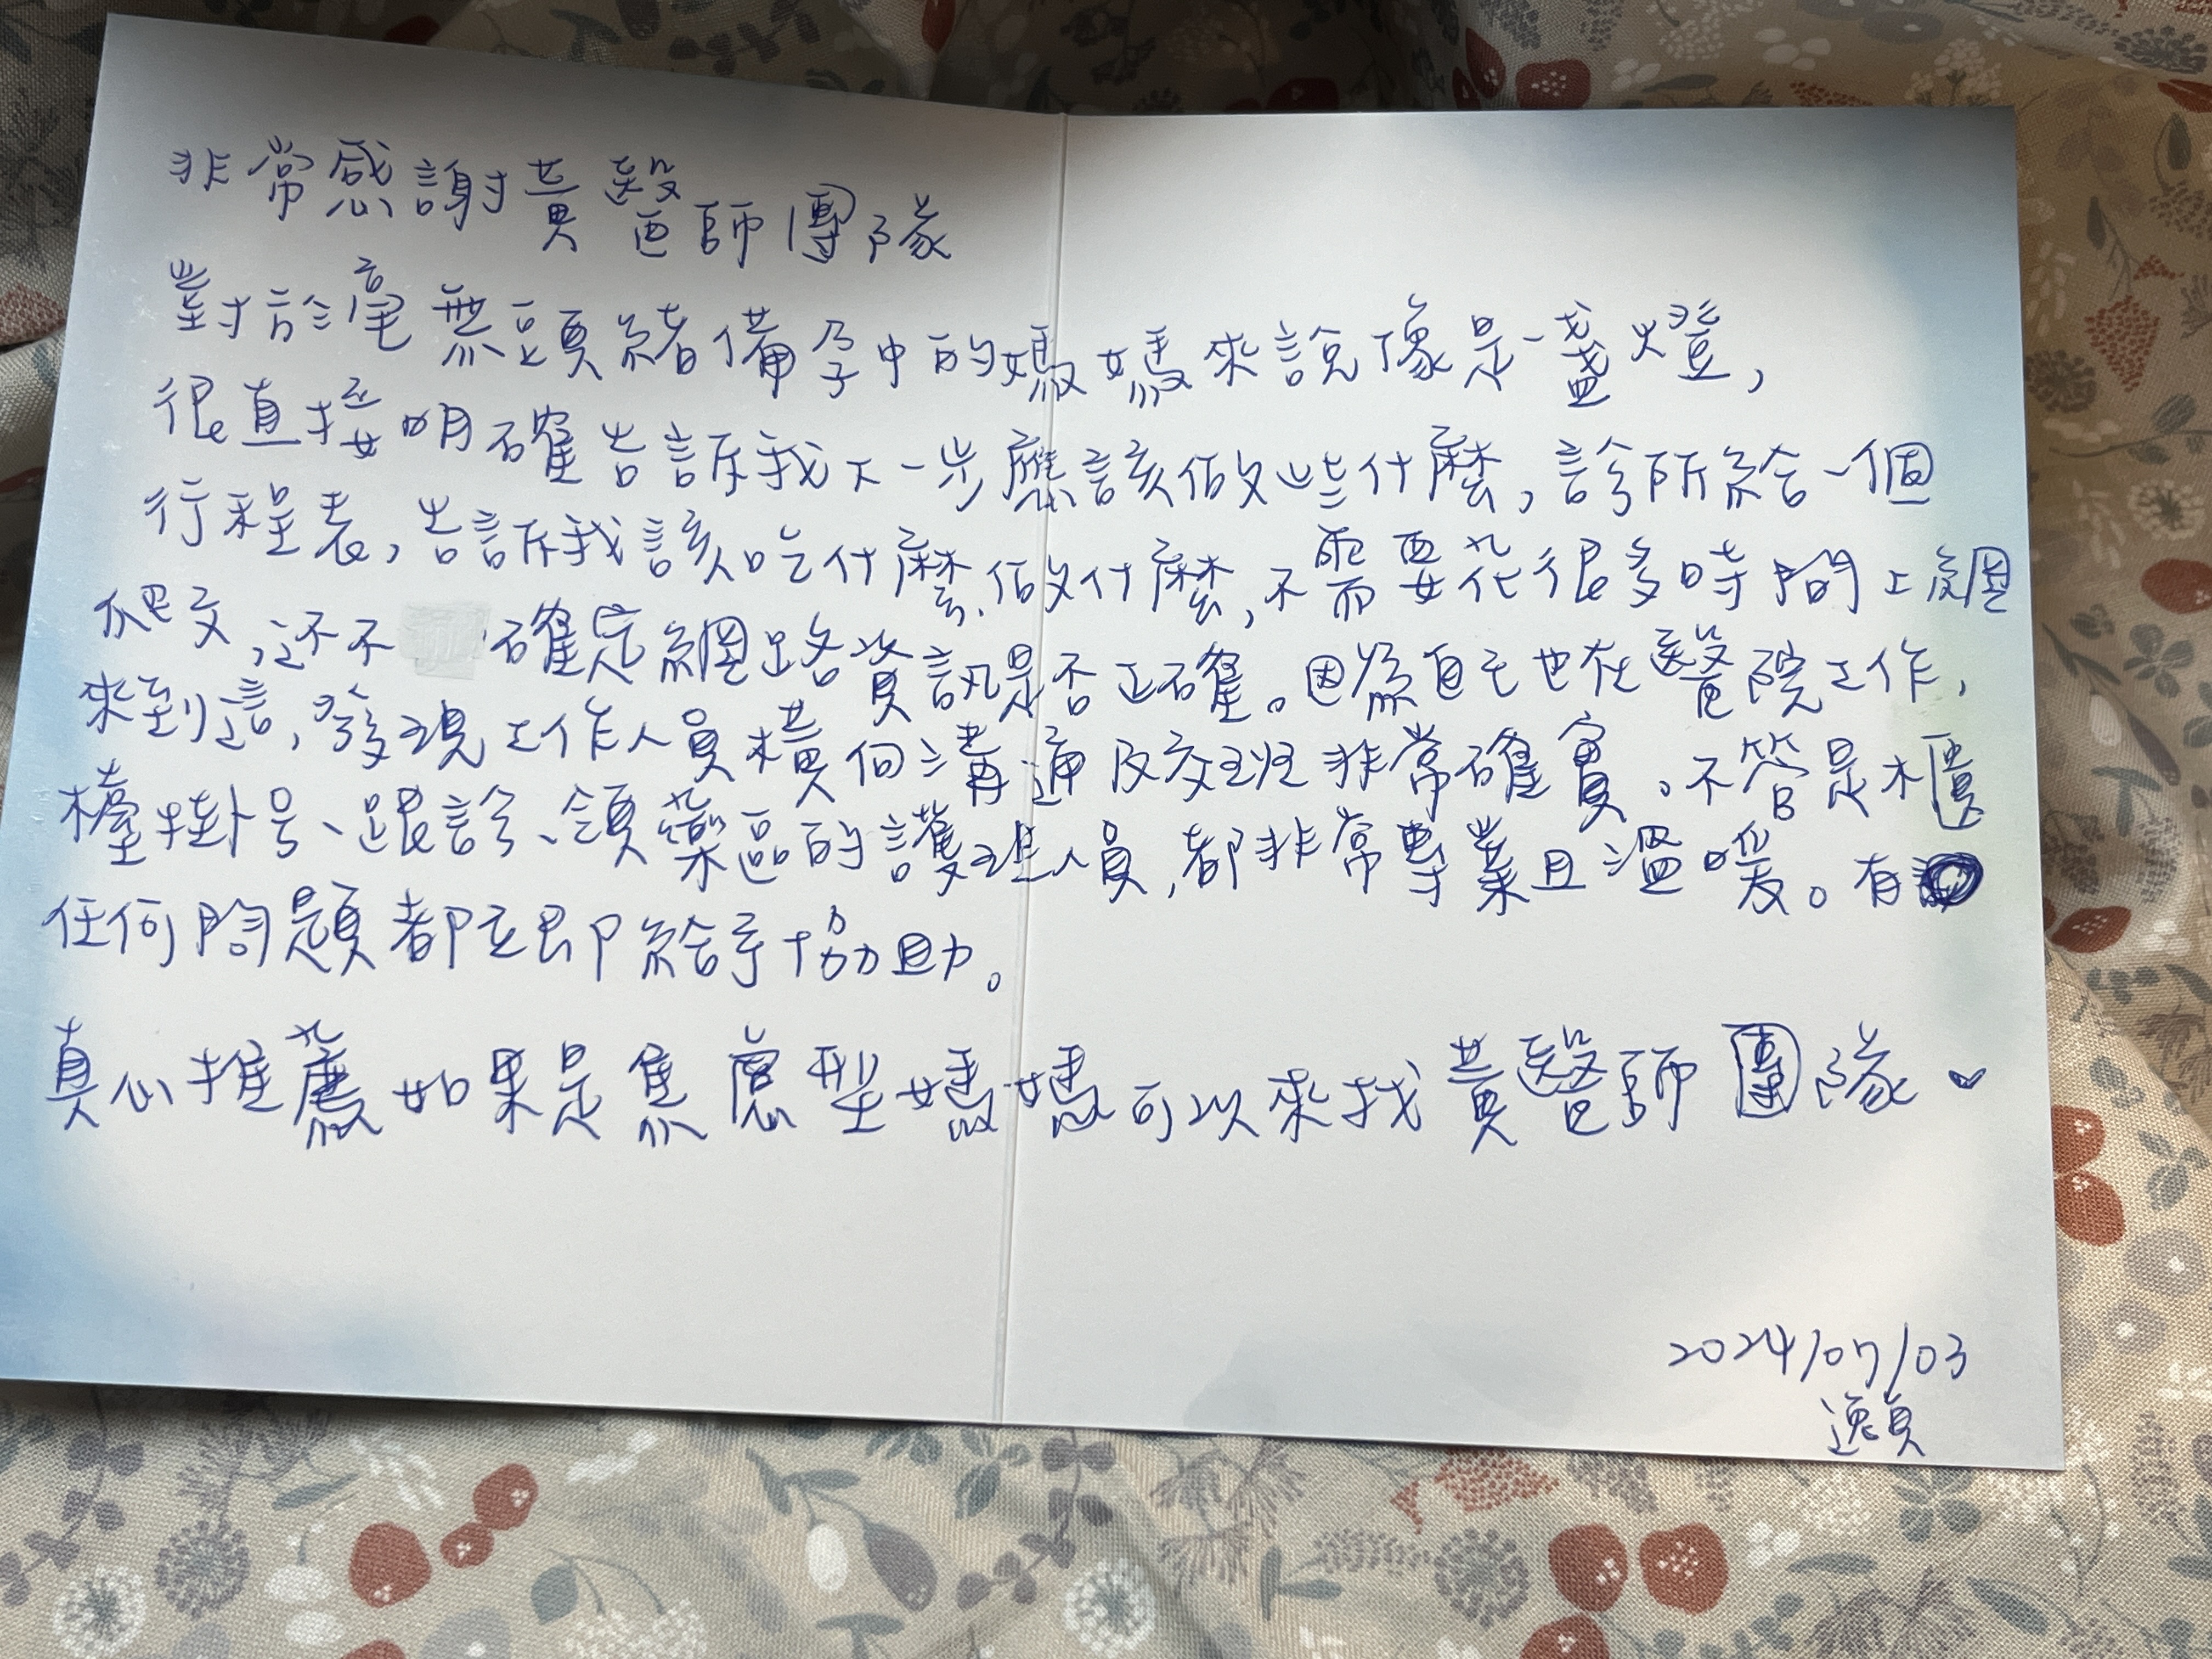 非常感謝黃醫師團隊
對於毫無頭緒備孕中的媽媽來說像是一盞燈，
很直接明確告訴我下一步應該做些什麼，診所給一個
行程表，告訴我該吃什麼、做什麼，不需要花很多時間上網
爬文，还不確定網路資訊是否正確。因為自己也在醫院工作，
來到這，發現工作人員橫向溝通及交班非常確實，不管是櫃
檯掛号、跟診、領藥區的護理人員，都非常專業且溫暖。有
任何問題都立即給予協助。
真心推薦如果是焦慮型媽媽可以來找黃醫師團隊♥
2024/07/03